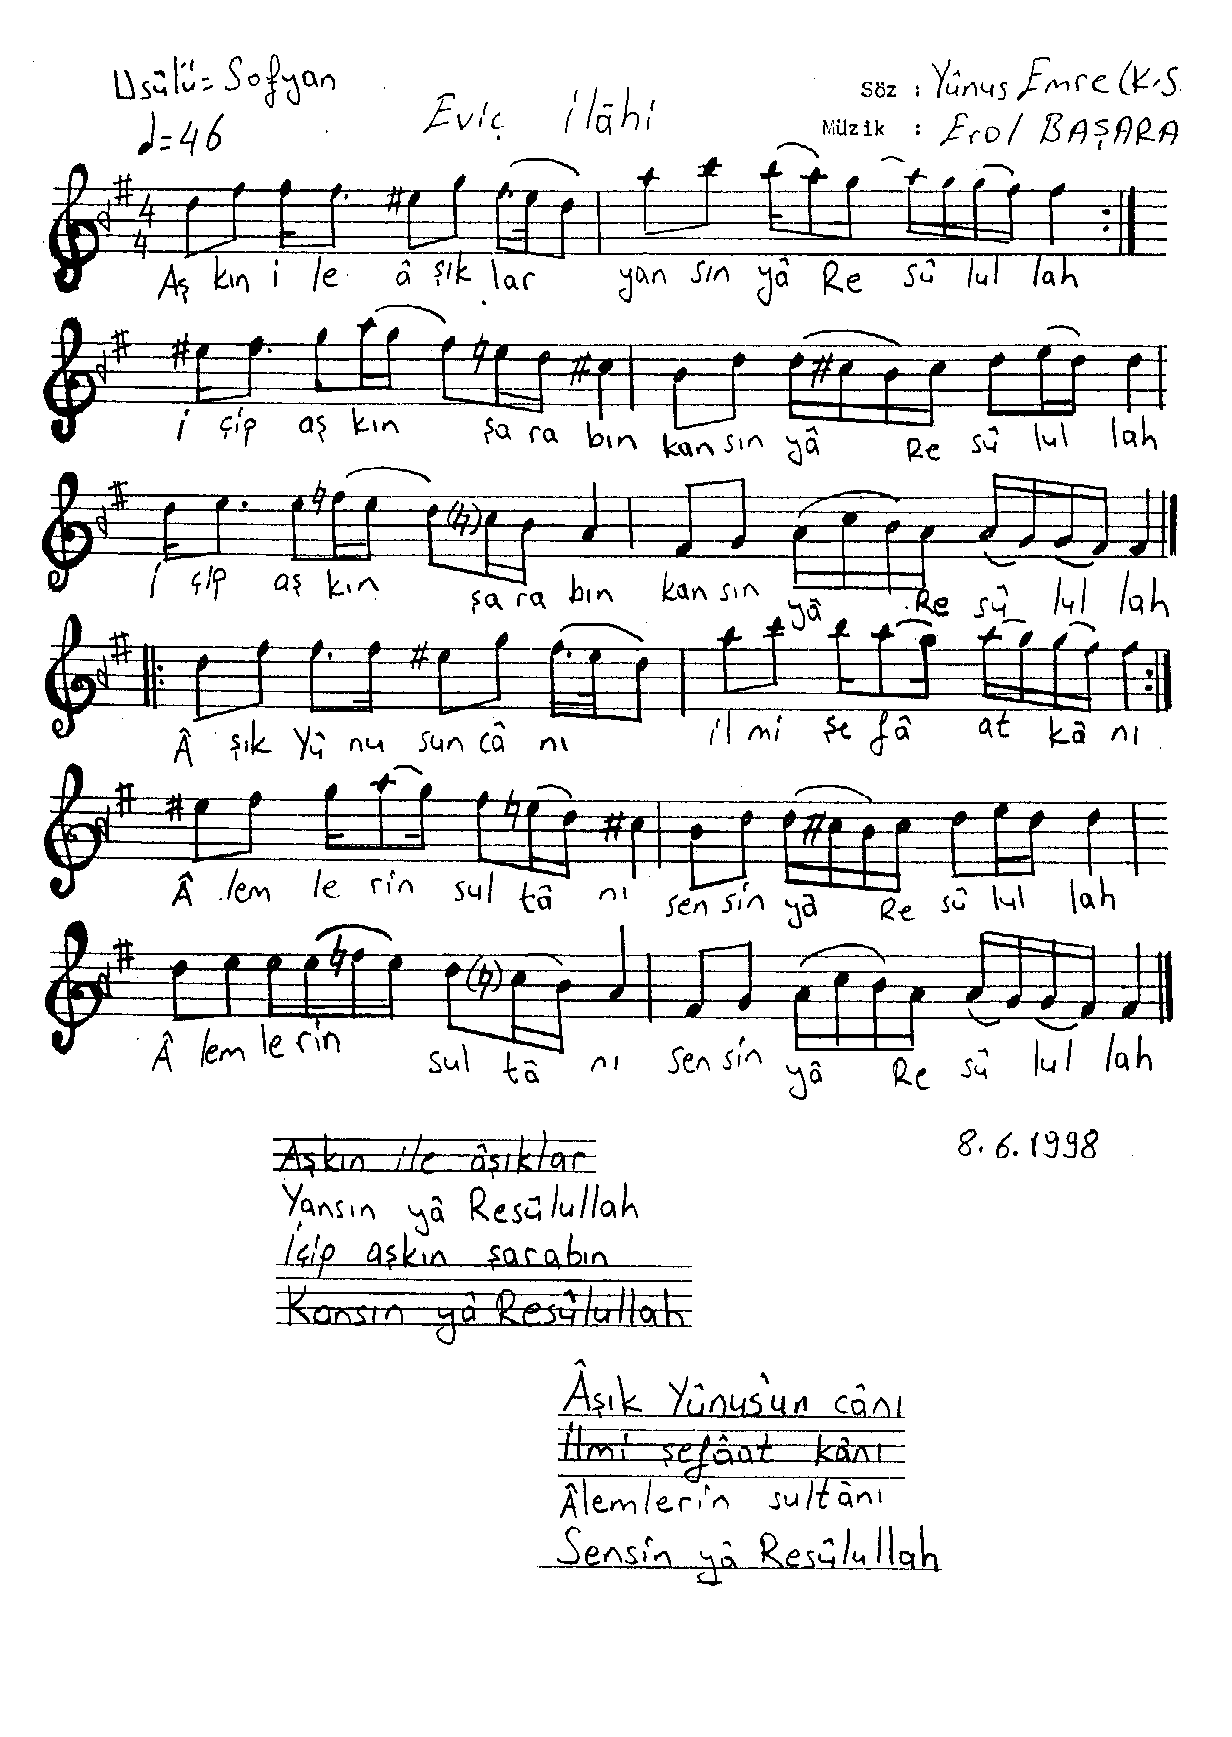 Usûlü= Sofyan
♩=46
Eviç ilâhi
Söz : Yûnus Emre (K.S.
Müzik : Erol BAŞARA
4
4
Aş kın i le â şık lar yan sın yâ Re sû lul lah
i çip aş kın şa ra bın kan sın yâ Re sû lul lah
i çip aş kın şa ra bın kan sın yâ Re sû lul lah
 şık Yû nu sun câ nı il mi şe fâ at kâ nı
 lem le rin sul tâ nı sen sin yâ Re sû lul lah
 lem le rin sul tâ nı sen sin yâ Re sû lul lah
8.6.1998
Aşkın ile âşıklar
Yansın yâ Resûlullah
İçip aşkın şarabın
Kansın yâ Resûlullah
Âşık Yûnus'un cânı
İlmi şefâat kânı
Âlemlerin sultânı
Sensin yâ Resûlullah